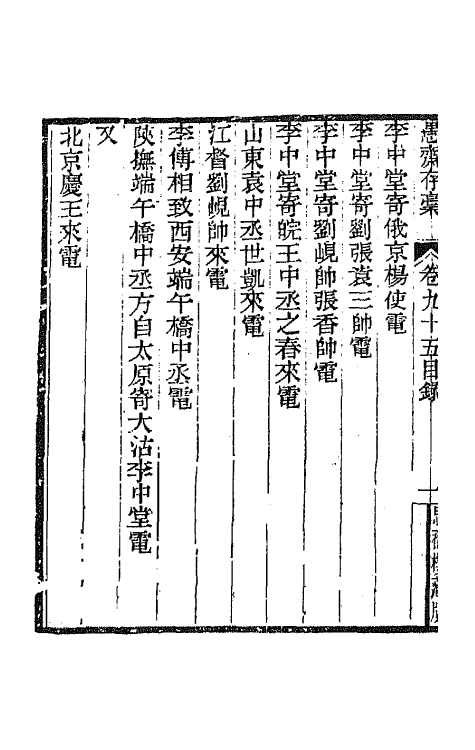 愚齋存稾 卷九十五目錄
李中堂寄俄京楊使電
李中堂寄劉張袁三帥電
李中堂寄劉峴帥張香帥電
李中堂寄皖王中丞之春來電
山東袁中丞世凱來電
江督劉峴帥來電
李傅相致西安端午橋中丞電
陝撫端午橋中丞方自太原寄大沽李中堂電
又
北京慶王來電